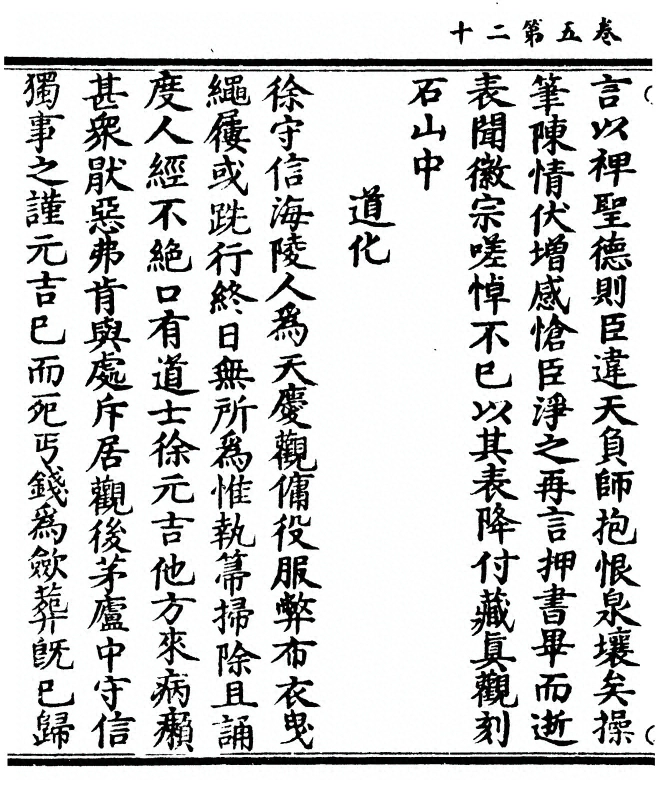 卷五第二十
言以裨聖德則臣違天負師抱恨泉壤矣操
筆陳情伏增感愴臣淨之再言押書畢而逝
表聞徽宗嗟悼不已以其表降付藏眞觀刻
石山中
道化
徐守信海陵人爲天慶觀傭役服弊布衣曳
繩屨或跣行終日無所爲惟執箒掃除且誦
度人經不絕口有道士徐元吉他方來病癩
甚衆猒惡弗肯與處斥居觀後茅廬中守信
獨事之謹元吉已而死丐錢爲斂葬旣已歸